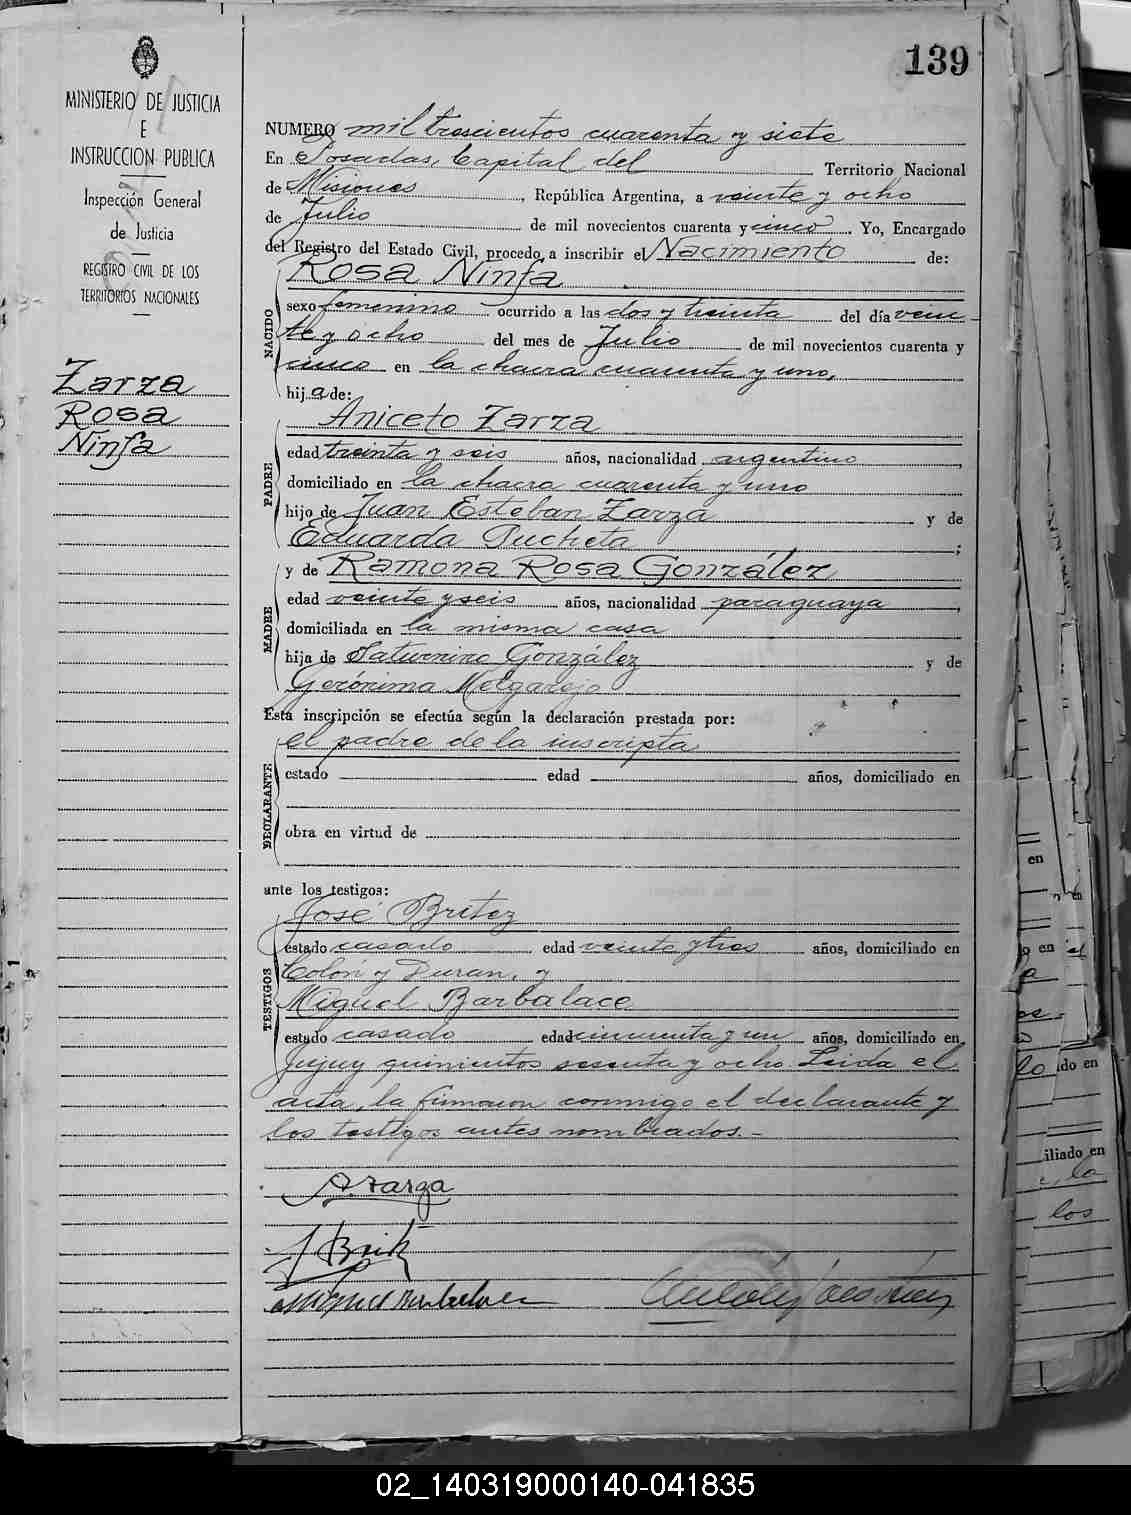 139
MINISTERIO DE JUSTICIA
E
INSTRUCCION PUBLICA
Inspección General
de Justicia
REGISTRO CIVIL DE LOS
TERRITORIOS NACIONALES
Zarza
Rosa
Ninfa
NUMERO mil trescientos cuarenta y siete
En Posadas, Capital del Territorio Nacional
de Misiones, República Argentina, a veinte y ocho
de Julio de mil novecientos cuarenta y cinco. Yo, Encargado
del Registro del Estado Civil, procedo a inscribir el Nacimiento de:
Rosa Ninfa
NACIDO
sexo femenino ocurrido a las dos y treinta del día vein-
te y ocho del mes de Julio de mil novecientos cuarenta y
cinco en la chacra cuarenta y uno,
hija de:
Aniceto Zarza
PADRE
edad treinta y seis años, nacionalidad argentino,
domiciliado en la chacra cuarenta y uno
hijo de Juan Esteban Zarza y de
Eduarda Pucheta;
y de Ramona Rosa González
MADRE
edad veinte y seis años, nacionalidad paraguaya,
domiciliada en la misma casa
hija de Saturnino González y de
Gerónima Melgarejo
Esta inscripción se efectúa según la declaración prestada por:
el padre de la inscripta
DECLARANTE
estado edad años, domiciliado en
obra en virtud de
ante los testigos:
José Britez
TESTIGOS
estado casado edad veinte y tres años, domiciliado en
Colón y Duran, y
Miguel Barbalace
estado casado edad cincuenta y un años, domiciliado en
Jujuy quinientos sesenta y ocho. Leida el
acta, la firmaron conmigo el declarante y
los testigos antes nombrados.-
A. Zarza
J Britez
Miguel Barbalace
en
en
en
do en
iliado en
la
los
02_140319000140-041835